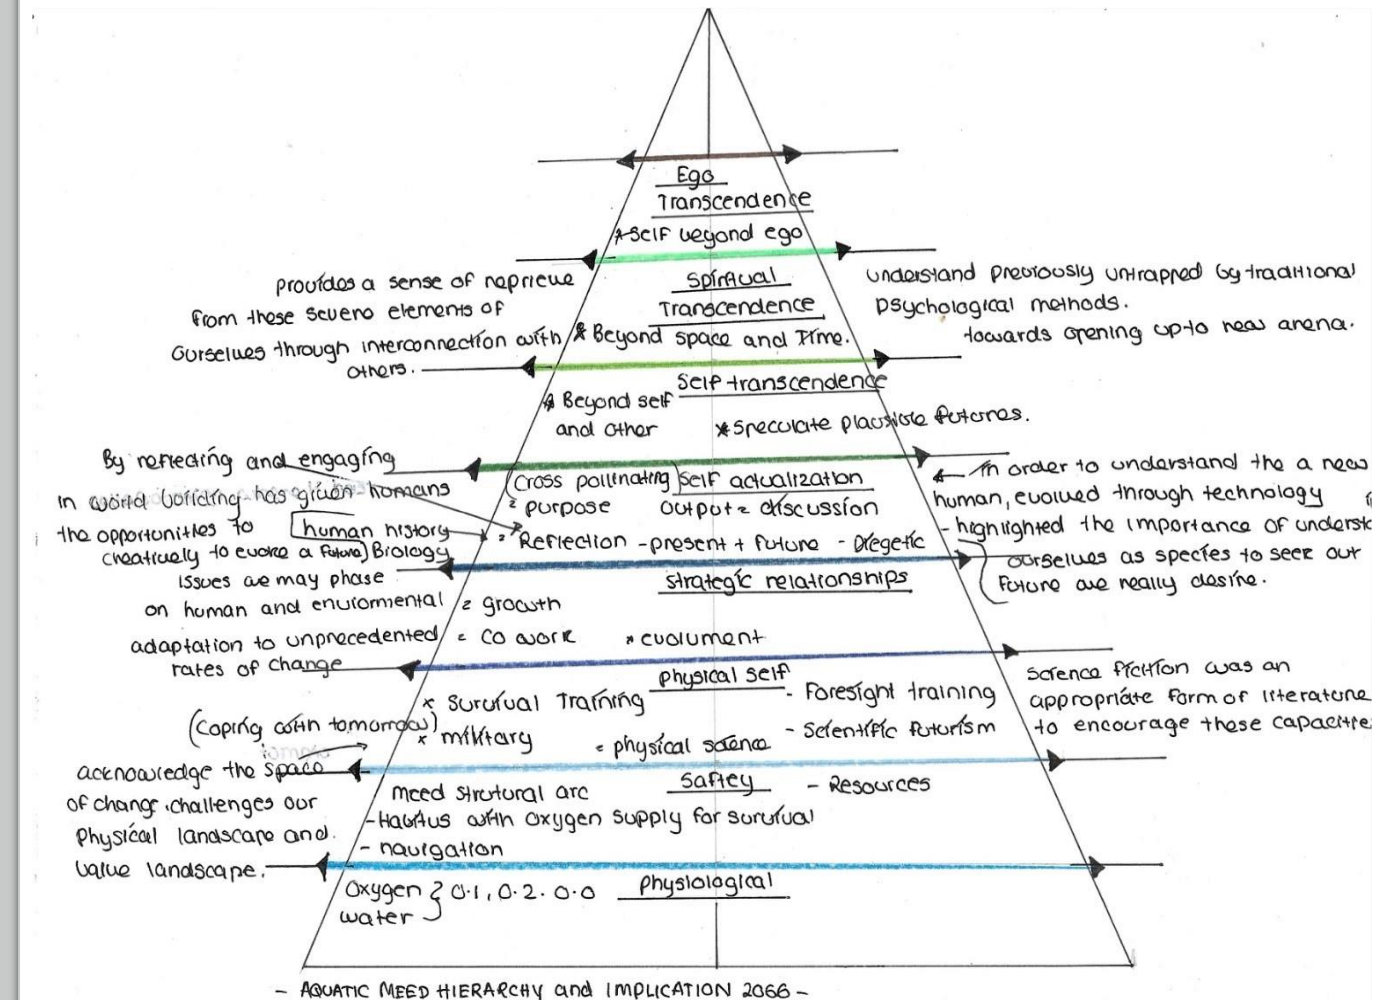 Ego
Transcendence
* Self beyond ego
provides a sense of
from these elements of
ourselves through interconnection with
others.
Spiritual
Transcendence
* Beyond space and Time.
understand previously by traditional
psychological methods.
towards opening up to new arena.
Self transcendence
* Beyond self
and other
* Speculate plausible futures.
By reflecting and engaging
in world building has given humans
the opportunities to
creatively to evoke a future
human history
Biology
issues we may phase
on human and enviormental
adaptation to unprecedented
rates of change
(cross pollinating) Self actualization
= purpose output = discussion
= Reflection - present + future - Diegetic
← in order to understand the a new
human, evolved through technology
- highlighted the importance of underst
ourselves as species to seek out
future we really desire.
strategic relationships
= growth
= co work * evolument
physical self
× Survival Training - Foresight training
× military = physical science - Scientific futurism
Science fiction was an
appropriate form of literature
to encourage these capacitie
(coping with tomorrow)
acknowledge the space
of change challenges our
Physical landscape and
value landscape.
Saftey - Resources
need strutural arc
- Habitus with oxygen supply for survival
- navigation
Physiological
Oxygen } 0.1, 0.2. 0.0
water
- AQUATIC NEED HIERARCHY and IMPLICATION 2066 -